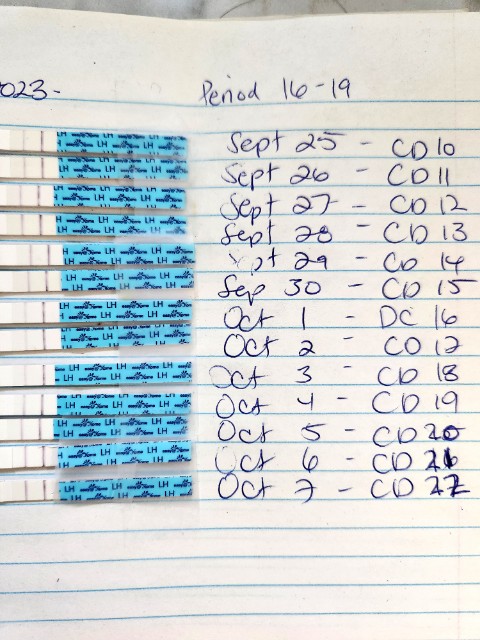 023-
Period 16-19
Sept 25 - CD 10
Sept 26 - CD 11
Sept 27 - CD 12
Sept 28 - CD 13
Sept 29 - CD 14
Sep 30 - CD 15
Oct 1 - DC 16
Oct 2 - CD 17
Oct 3 - CD 18
Oct 4 - CD 19
Oct 5 - CD 20
Oct 6 - CD 21
Oct 7 - CD 22
LH LH LH